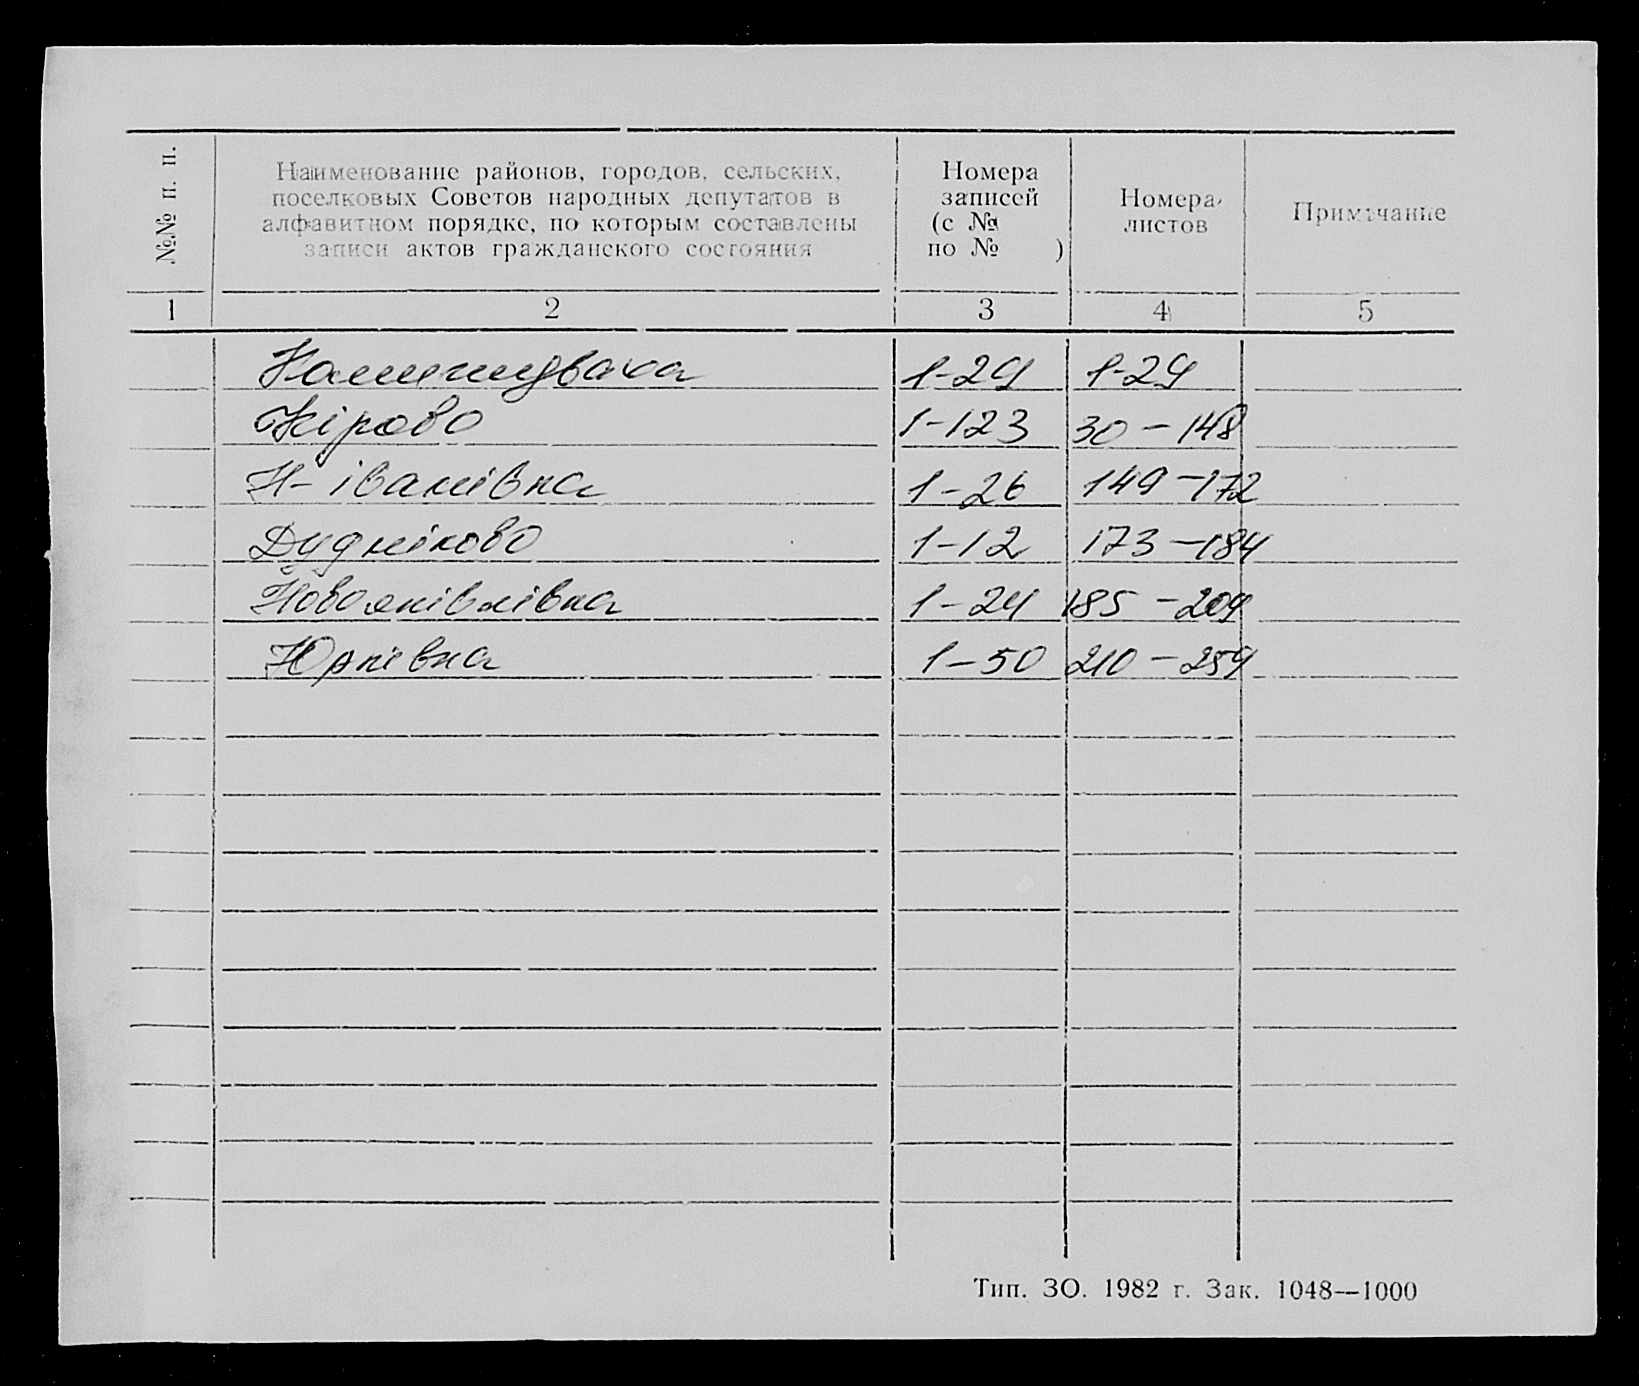 №№ п. п.
Наименование районов, городов, сельских,
поселковых Советов народных депутатов в
алфавитном порядке, по которым составлены
записи актов гражданского состояния
Номера
записей
(с №
по № )
Номера
листов
Примечание
1 2 3 4 5
Камишуваха 1-29 1-29
Кірово 1-123 30-148
Н-іванівка 1-26 149-172
Дудніково 1-12 173-184
1-24 185-209
Юрківка 1-50 210-259
Тип. ЗО. 1982 г. Зак. 1048—1000